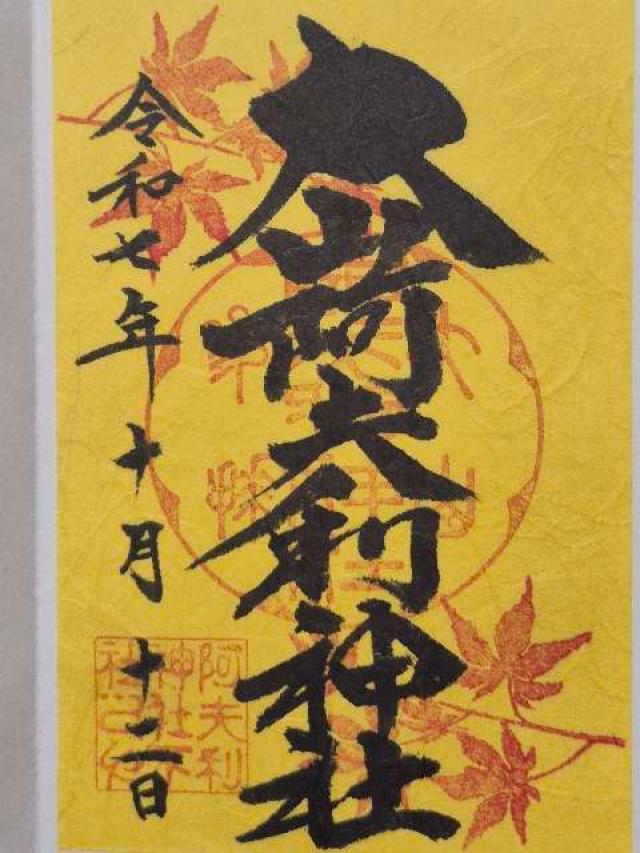 大山阿夫利神社
令和七年十月十二日
阿夫利
神社下
社之印